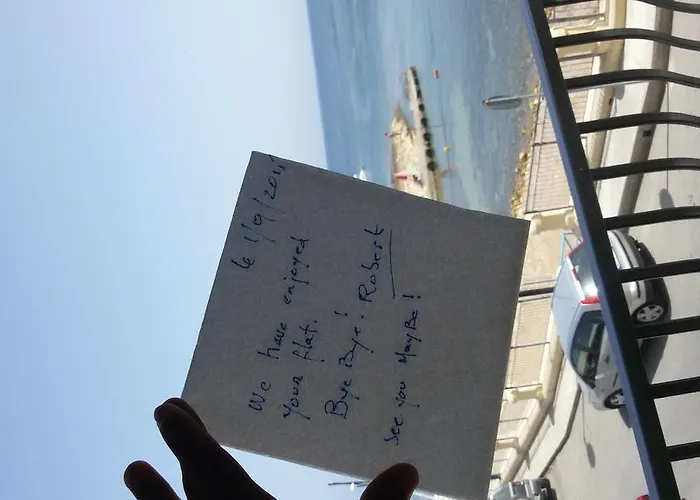 le 1/9/2011
We have enjoyed
your flat.
Bye Bye! Robert
See you MayBe!